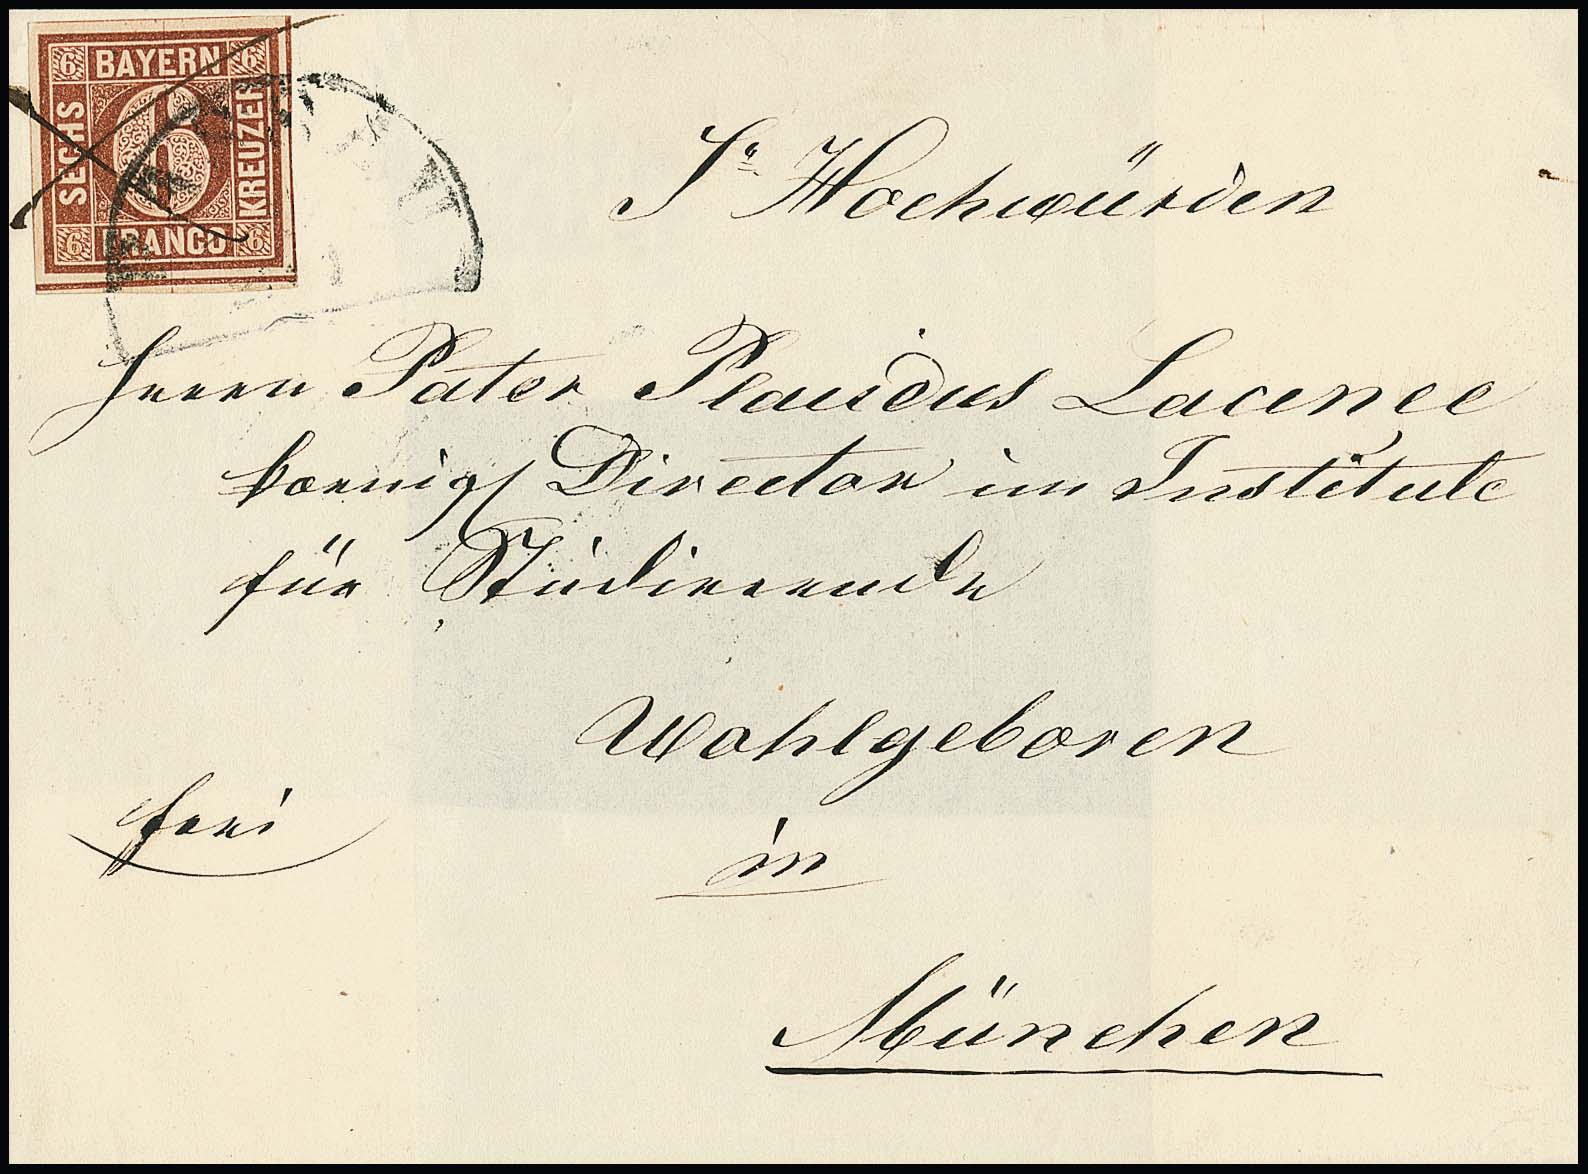 6 BAYERN 6
SECHS
6
KREUZER
6 FRANCO 6
Sr Hochwürden
Herrn Pater Placidus Lacenee
koenigl Director im Institute
für Studierende
Wohlgeboren
frei
in
München